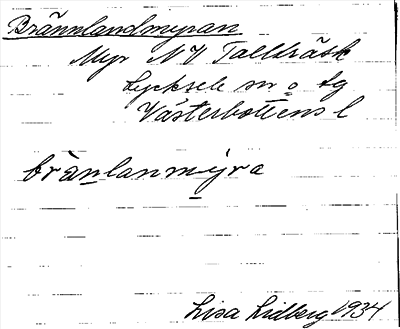 Brännlandmyran
Myr NV Tallträsk
Lycksele sn o tg
Västerbottens l
bränlanmýra
Lisa Lidberg 1934